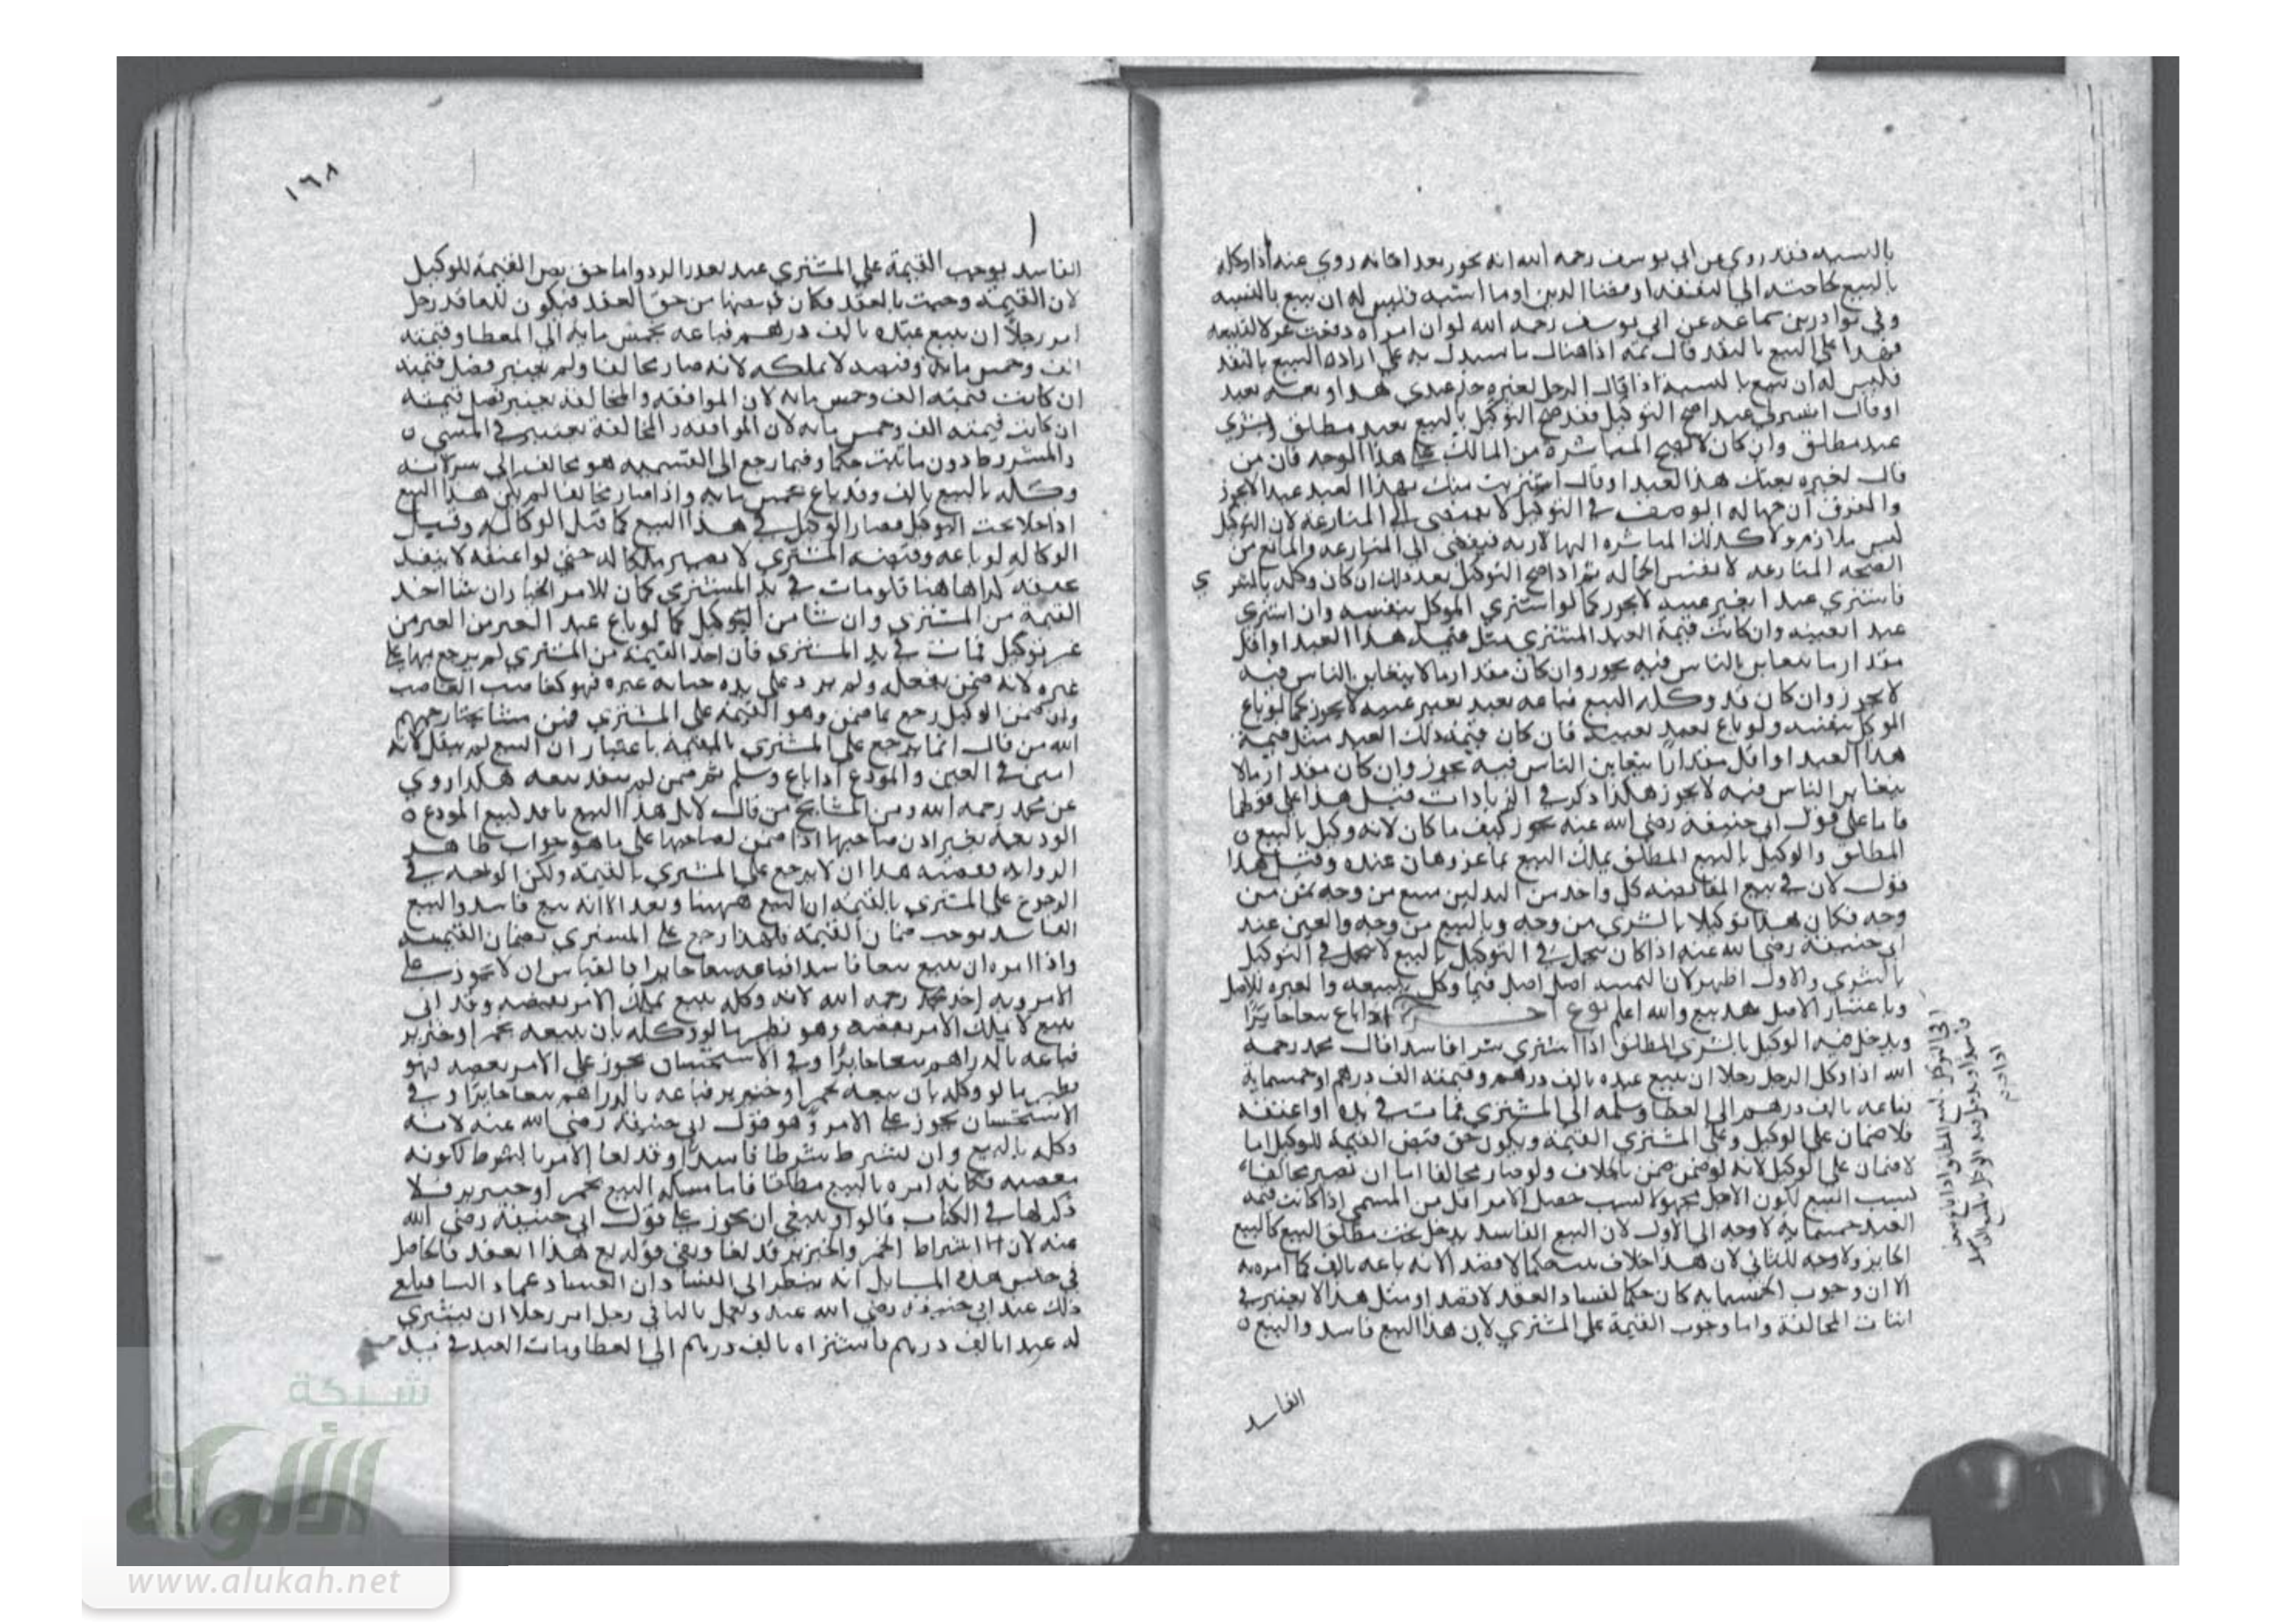 بالنسيه فقد روي عن ابي يوسف رحمه الله انه يجوز روي عنه اذا وكله
بالبيع لحاجته الي النفقه او قضا الدين او ما اشبه فليس له ان يبيع بالنسيه
وفي نوادر بن سماعه عن ابي يوسف رحمه الله لو ان امراه دفعت غزلا لتبيعه
فهذا علي البيع بالنقد قال ثمه اذا هناك ما يستدل به علي اراده البيع بالنقد
فليس له ان يبيع بالنسيه اذا قال الرجل لغيره خذ عبدي هذا و بعه بعبد
او قال اشتر لي عبدا صح التوكيل فقد صح التوكيل بالبيع بعبد مطلق وبشري
عبد مطلق وان كان لا تصح المباشره من المالك علي هذا الوجه فان من
قال لغيره بعتك هذا العبد او قال اشتريت منك بهذا العبد عبدا لا يجوز
والفرق ان جهاله الوصف في التوكيل لا تفضي الي المنازعه لان التوكيل
ليس بلازم ولا كذلك المباشره لانها لازمه فيفضي الي المنازعه والمانع من
الصحه المنازعه لا نفس الجهاله ثم اذا صح التوكيل بعد ذلك ان كان وكله بالشري
فاشتري عبدا بغير عينه لا يجوز كما لو اشتري الموكل بنفسه وان اشتري
عبدا بعينه وان كانت قيمة العبد المشتري مثل قيمة هذا العبد او اقل
مقدار ما يتغابن الناس فيه يجوز وان كان مقدار ما لا يتغابن الناس فيه
لا يجوز وان كان قد وكله بالبيع فباعه بعبد بغير عينه لا يجوز كما لو باع
الموكل بنفسه ولو باع بعبد بعينه فان كان قيمة ذلك العبد مثل قيمة
هذا العبد او اقل مقدارا يتغابن الناس فيه يجوز وان كان مقدار ما لا
يتغابن الناس فيه لا يجوز هكذا ذكر في الزيادات قيل هذا علي قولهما
فاما علي قول ابي حنيفة رضي الله عنه يجوز كيف ما كان لانه وكيل بالبيع
المطلق والوكيل بالبيع المطلق يملك البيع بما عز وهان عنده وقيل هذا
قول لان في بيع المقايضه كل واحد من البدلين مبيع من وجه ثمن من
وجه فكان هذا توكيلا بالشري من وجه وبالبيع من وجه والغبن عند
ابي حنيفة رضي الله عنه اذا كان يتحمل في التوكيل بالبيع لا يتحمل في التوكيل
بالشري والاول اظهر لان اصل فيما وكل ببيعه والعبره للاصل
وباعتبار الاصل هذا بيع والله اعلم نوع اخر اذا باع بيعا جايزا
ويدخل فيه الوكيل بالشري المطلق اذا اشتري شرا فاسدا قال محمد رحمه
الله اذا وكل الرجل رجلا ان يبيع عبده بالف درهم وقيمته الف درهم او خمسماية
فباعه بالف درهم الي العطا وسلمه الي المشتري فمات في يده او اعتقه
فلا ضمان علي الوكيل وعلي المشتري القيمة ويكون حق قبض القيمة للوكيل اما
لا ضمان علي الوكيل لانه لو ضمن ضمن بالخلاف ولو صار مخالفا اما ان يصير مخالفا
لسبب البيع لكون الاجل مجهولا لسبب حصل للامر اقل من المسمي اذا كانت قيمة
العبد خمسماية لا وجه الي الاول لان البيع الفاسد يدخل تحت مطلق البيع كالبيع
الجايز ولا وجه للثاني لان هذا خلاف يثبت حكما لا قصدا لانه باعه بالف كما امره به
الا ان وجوب الخمسمايه كان حكما لفساد العقد لا قصدا ومثل هذا لا يعتبر في
اثبات المخالفة واما وجوب القيمة علي المشتري لان هذا البيع فاسد والبيع
الفاسد
١٦٨
الفاسد يوجب القيمة علي المشتري عند تعذر الرد واما حق قبض القيمة للوكيل
لان القيمة وجبت بالعقد فكان قبضها من حق العقد فيكون للعاقد رجل
امر رجلا ان يبيع عبده بالف درهم فباعه بخمس مايه الي العطا وقيمته
الف وخمس مايه وقبضه لا يملكه لانه صار مخالفا ولم يعتبر فضل قيمته
ان كانت قيمته الف وخمس مايه لان الموافقه والمخالفة يعتبر فضل قيمته
ان كانت قيمته الف وخمس مايه لان الموافقه والمخالفة يعتبر في المسمي
والمشروط دون ما ثبت حكما وفيما رجع الي التسميه هو مخالف الي شر لانه
وكله بالبيع بالف وقد باع بخمس مايه واذا صار مخالفا لم يكن هذا البيع
داخلا تحت التوكيل فصار الوكيل في هذا البيع كما قبل الوكاله وقبل
الوكاله لو باعه وقبضه المشتري لا يصير ملكا له حتي لو اعتقه لا ينفذ
عتقه كذا هاهنا فلو مات في يد المشتري كان للامر الخيار ان شا اخذ
القيمة من المشتري وان شا من الوكيل كما لو باع عبد الغير من الغير من
غير توكيل فمات في يد المشتري فان اخذ القيمة من المشتري لم يرجع بها علي
غيره لانه ضمن بفعله ولم يرد علي يده جنايه غيره فهو كغاصب الغاصب
وان ضمن الوكيل رجع بما ضمن وهو القيمة علي المشتري فمن مشايخنا رحمهم
الله من قال انما يرجع علي المشتري بالقيمة باعتبار ان البيع لم ينفذ لانه
امين في العين والمودع اذا باع وسلم ثم ضمن لم ينفذ بيعه هكذا روي
عن محمد رحمه الله ومن المشايخ من قال لا بل هذا البيع نافذ كبيع المودع
الوديعه بغير اذن صاحبها اذا ضمن لصاحبها علي ما هو جواب ظاهر
الروايه وقضيه هذا ان لا يرجع علي المشتري بالقيمة ولكن الوجه في
الرجوع علي المشتري بالقيمة ان البيع ههنا ونفذ الا انه بيع فاسد والبيع
الفاسد يوجب ضمان القيمة فلهذا رجع علي المشتري بضمان القيمة
واذا امره ان يبيع بيعا فاسدا فباعه بيعا جايزا فالقياس ان لا يجوز علي
الامر وبه اخذ محمد رحمه الله لانه وكله ببيع يملك الامر نقضه وقد اتي
ببيع لا يملك الامر نقضه وهو نظير ما لو وكله بان يبيعه بخمر او خنزير
فباعه بالدراهم بيعا جايزا وفي الاستحسان يجوز علي الامر نقضه فهو
نظير ما لو وكله بان يبيعه بخمر او خنزير فباعه بالدراهم بيعا جايزا وفي
الاستحسان يجوز علي الامر وهو قول ابي حنيفة رضي الله عنه لانه
وكله بالبيع وان يشترط شرطا فاسدا وقد لغا الامر بالشرط لكونه
معصيه فكانه امره بالبيع مطلقا فاما مساله البيع بخمر او خنزير فلا
ذكر لها في الكتاب قالوا وينبغي ان يجوز علي قول ابي حنيفة رضي الله
عنه لان اشتراط الخمر والخنزير قد لغا وبقي قوله بع هذا العبد فالحاصل
في جنس هذه المسايل انه ينظر الي الفساد
ذلك عند ابي حنيفة رضي الله عنه ونعمل بالباقي رجل امر رجلا ان يشتري
له عبدا بالف درهم فاشتراه بالف درهم الي العطا ومات العبد في يد
شبكة
الألوكة
www.alukah.net